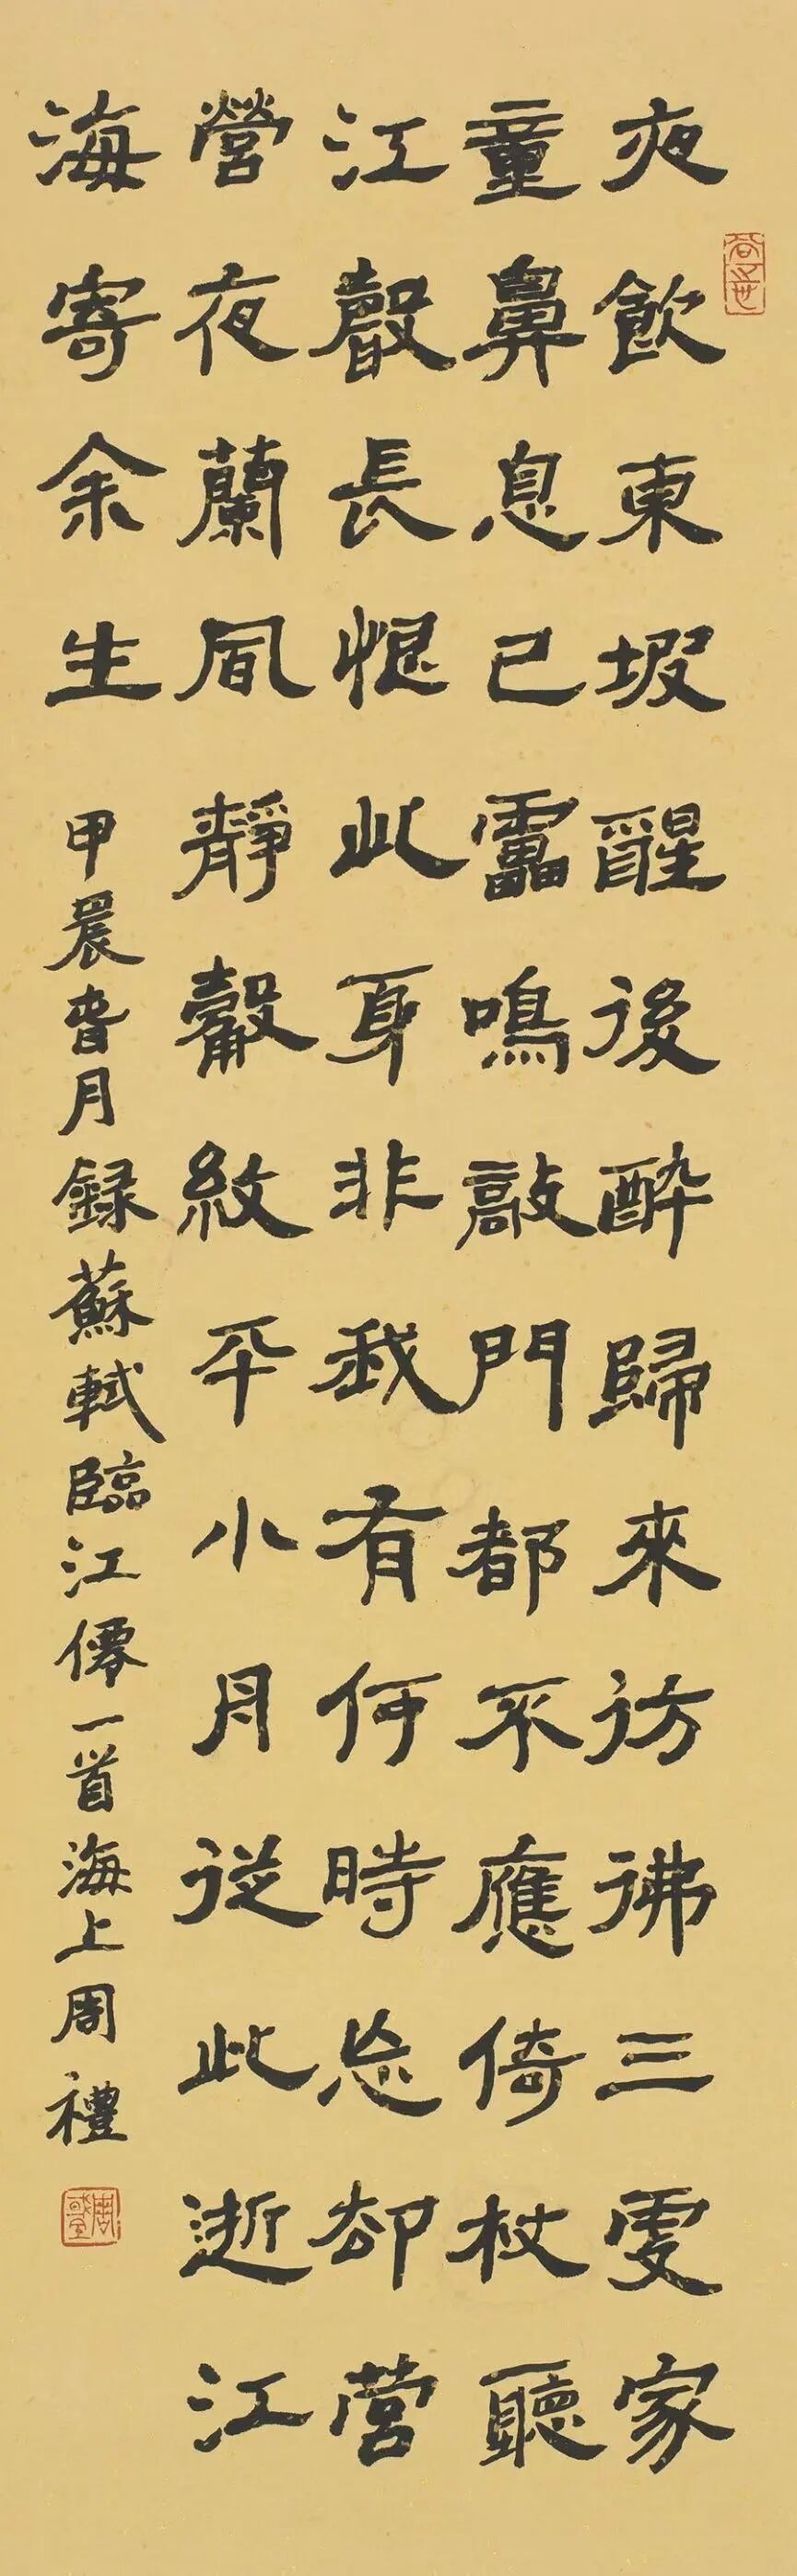 夜飲東坡醒後醉歸來彷彿三更家
童鼻息已靁鳴敲門都不應倚杖聽
江聲長恨此身非我有何時忘却營
營夜蘭風靜縠紋平小月從此逝江
海寄余生 甲辰春月録蘇軾臨江僊一首海上周禮